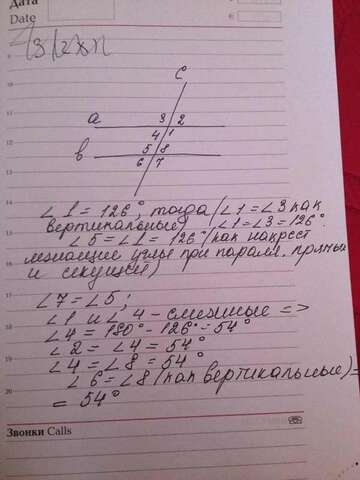 Дата
Date
с
а 3 2
4 1
в 5 8
6 7
∠1 = 126°, тогда (∠1 = ∠3 как
вертикальные), ∠1 = ∠3 = 126°.
∠5 = ∠1 = 126° (как накрест
лежащие углы при паралл. прямы
и секущей)
∠7 = ∠5;
∠1 и ∠4 - смежные =>
∠4 = 180° - 126° = 54°
∠2 = ∠4 = 54°
∠4 = ∠8 = 54°
∠6 = ∠8 (как вертикальные) =
= 54°
9
10
11
12
13
14
15
16
17
18
19
20
Звонки Calls